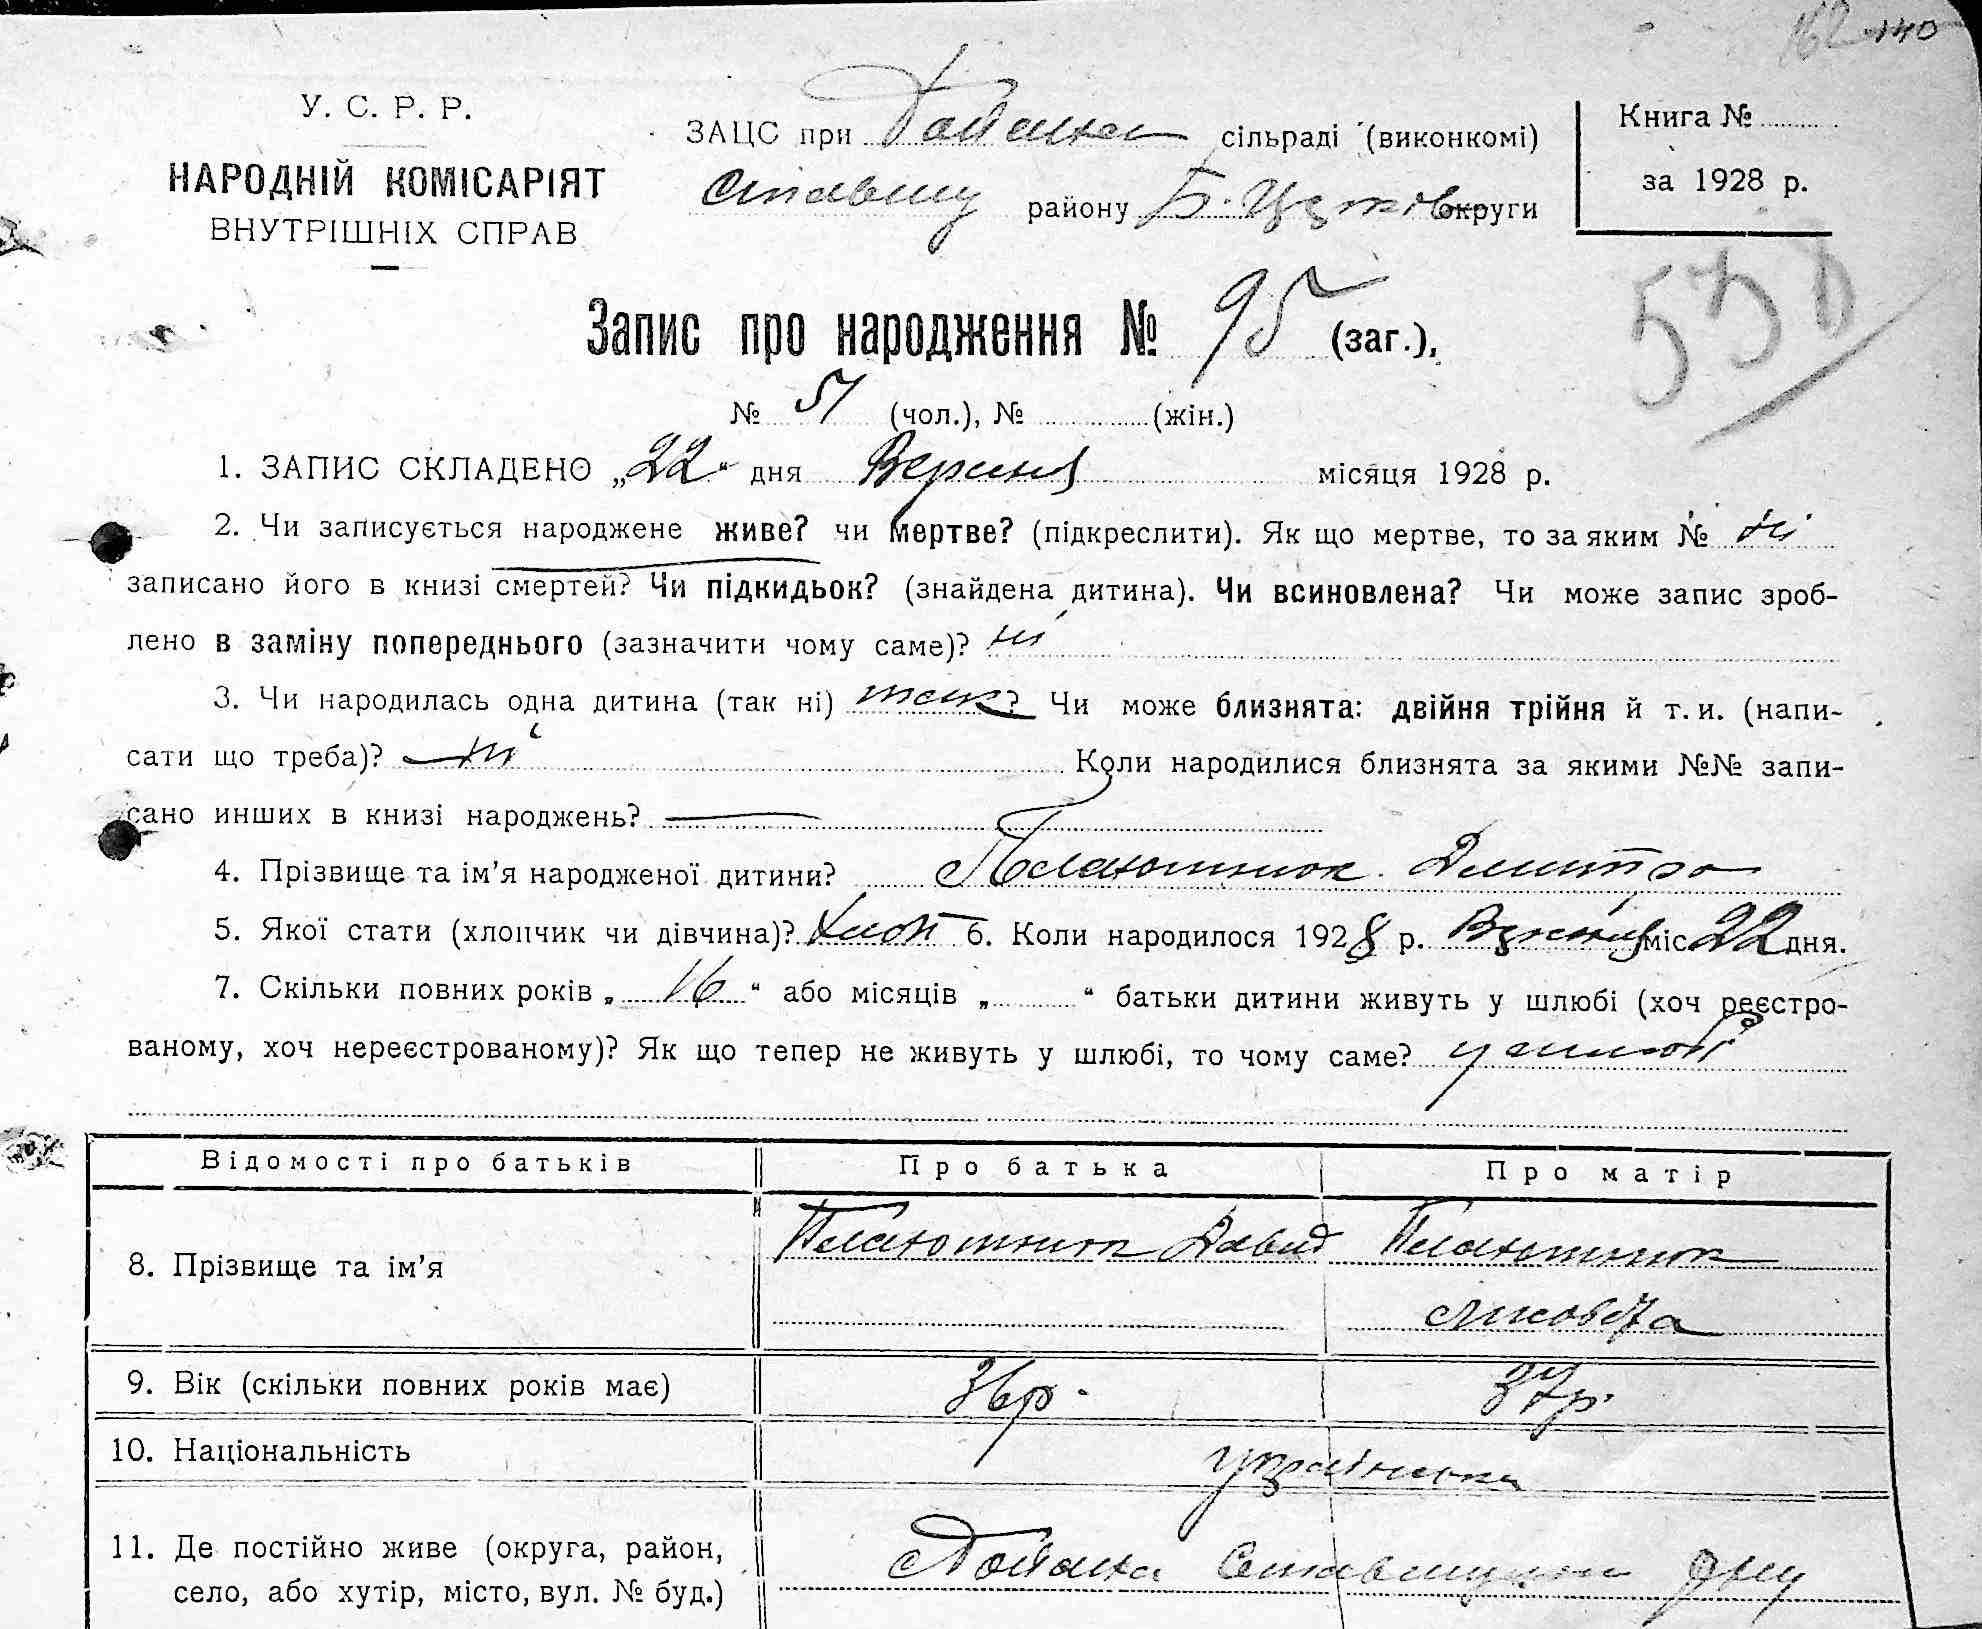 162 140
У. С. Р. Р.
НАРОДНІЙ КОМІСАРІЯТ
ВНУТРІШНІХ СПРАВ
ЗАЦС при сільраді (виконкомі)
району Б. Церків округи
Книга №
за 1928 р.
Запис про народження № 95 (заг.),
530
№ 51 (чол.), № (жін.)
1. ЗАПИС СКЛАДЕНО „22“ дня Вересня місяця 1928 р.
2. Чи записується народжене живе? чи мертве? (підкреслити). Як що мертве, то за яким № ні
записано його в книзі смертей? Чи підкидьок? (знайдена дитина). Чи всиновлена? Чи може запис зроб-
лено в заміну попереднього (зазначити чому саме)? ні
3. Чи народилась одна дитина (так ні) так? Чи може близнята: двійня трійня й т. и. (напи-
сати що треба)? ні Коли народилися близнята за якими №№ запи-
сано инших в книзі народжень? —
4. Прізвище та ім’я народженої дитини? Плахотнюк Дмитро
5. Якої стати (хлопчик чи дівчина)? хлоп 6. Коли народилося 1928 р. Вересня міс 22 дня.
7. Скільки повних років „16“ або місяців „ “ батьки дитини живуть у шлюбі (хоч реєстро-
ваному, хоч нереєстрованому)? Як що тепер не живуть у шлюбі, то чому саме? у шлюбі
Відомості про батьків Про батька Про матір
8. Прізвище та ім’я Плахотнюк Давид Плахотнюк
9. Вік (скільки повних років має) 36 р. 37 р.
10. Національність українська
11. Де постійно живе (округа, район,
село, або хутір, місто, вул. № буд.)